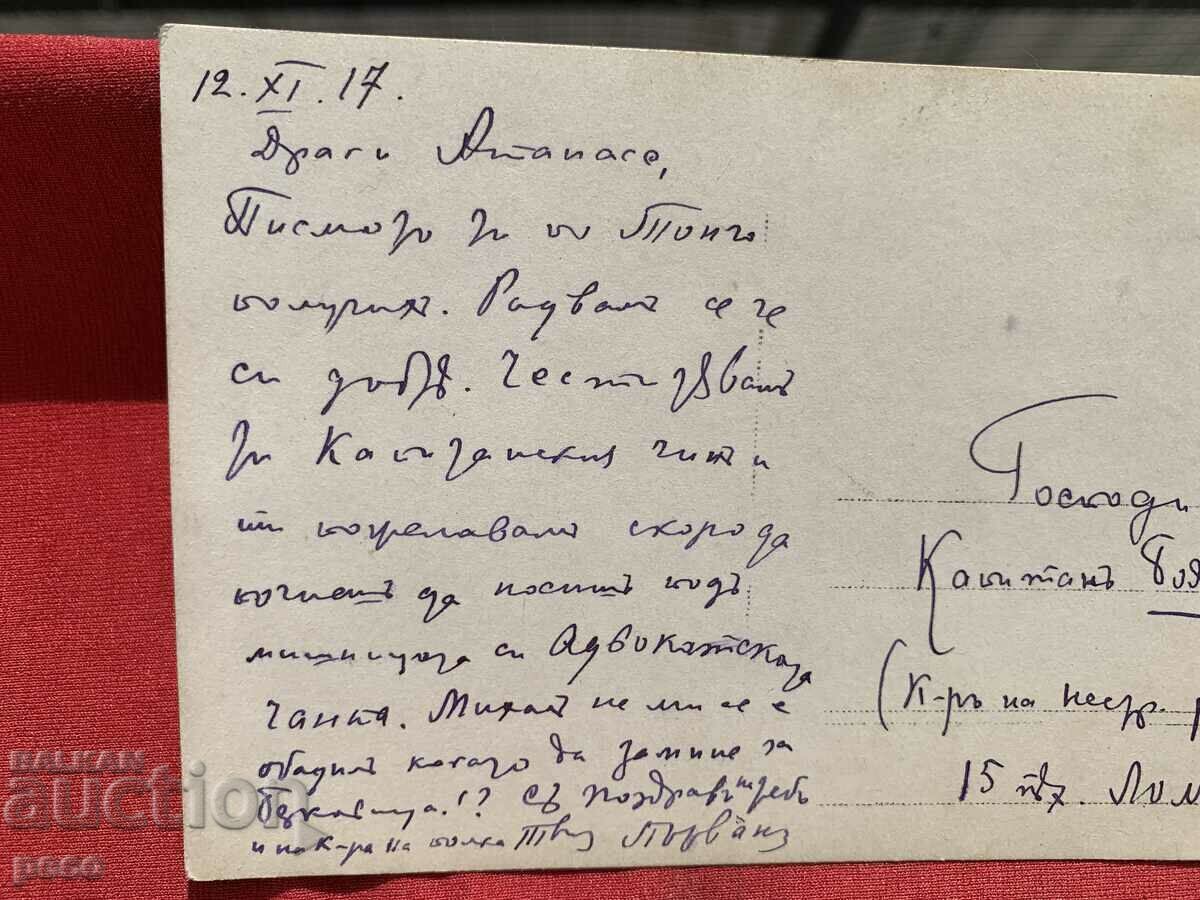 12.XI.17.
Драги Атанасе,
Писмото ти по Тончо
получихъ. Радвамъ се че
си добрѣ. Честитявамъ
ти Капитанския чинъ и
ти пожелавамъ скоро да
почнешъ да носишъ подъ
мишницата си Адвокатската
чанта. Михаил не ми се е
обадилъ когато да замине за
!? Съ поздравъ тебъ
и на К-ра на полка Твой Първанъ
Господи
Капитанъ
(К-ръ на нестр.
15 пѣх. Лом
BALKAN
auction
peco